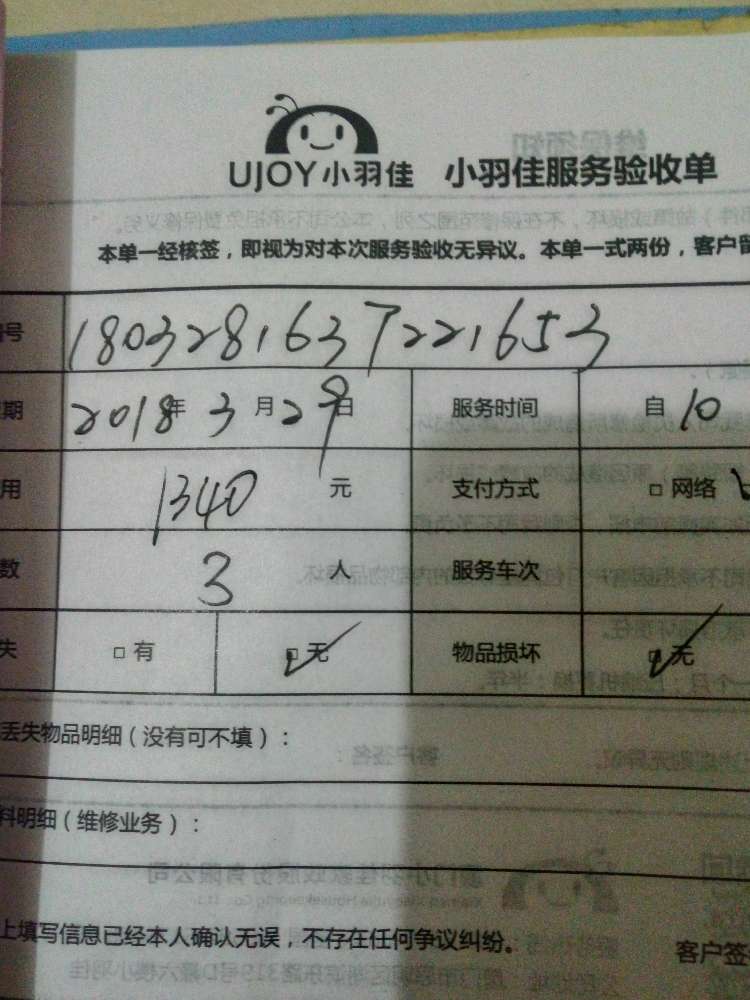 UJOY小羽佳 小羽佳服务验收单
本单一经核签，即视为对本次服务验收无异议。本单一式两份，客户留
号 1803281637221653
期 2018年3月29日 服务时间 自10
用 1340元 支付方式 □ 网络
数 3人 服务车次
失 □ 有 □ 无 物品损坏 □ 无
丢失物品明细（没有可不填）：
料明细（维修业务）：
上填写信息已经本人确认无误，不存在任何争议纠纷。
客户签